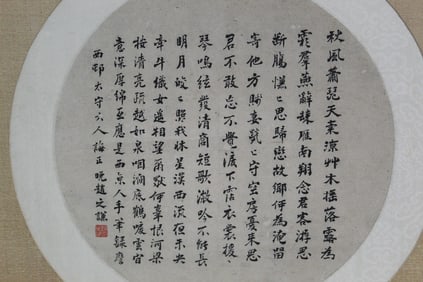 秋風蕭瑟天氣涼艸木搖落露為
霜羣燕辭歸雁南翔念君客游思
斷腸慊〻思歸戀故鄉何為淹留
寄他方賤妾煢〻守空房憂來思
君不敢忘不覺淚下霑衣裳援
琴鳴絃發清商短歌微吟不能長
明月皎〻照我牀星漢西流夜未央
牽牛織女遙相望爾獨何辜限河梁
清亮疏越如泉咽澗底鶴唳雲
意深厚綿
西邨太守大人誨正晚趙之謙